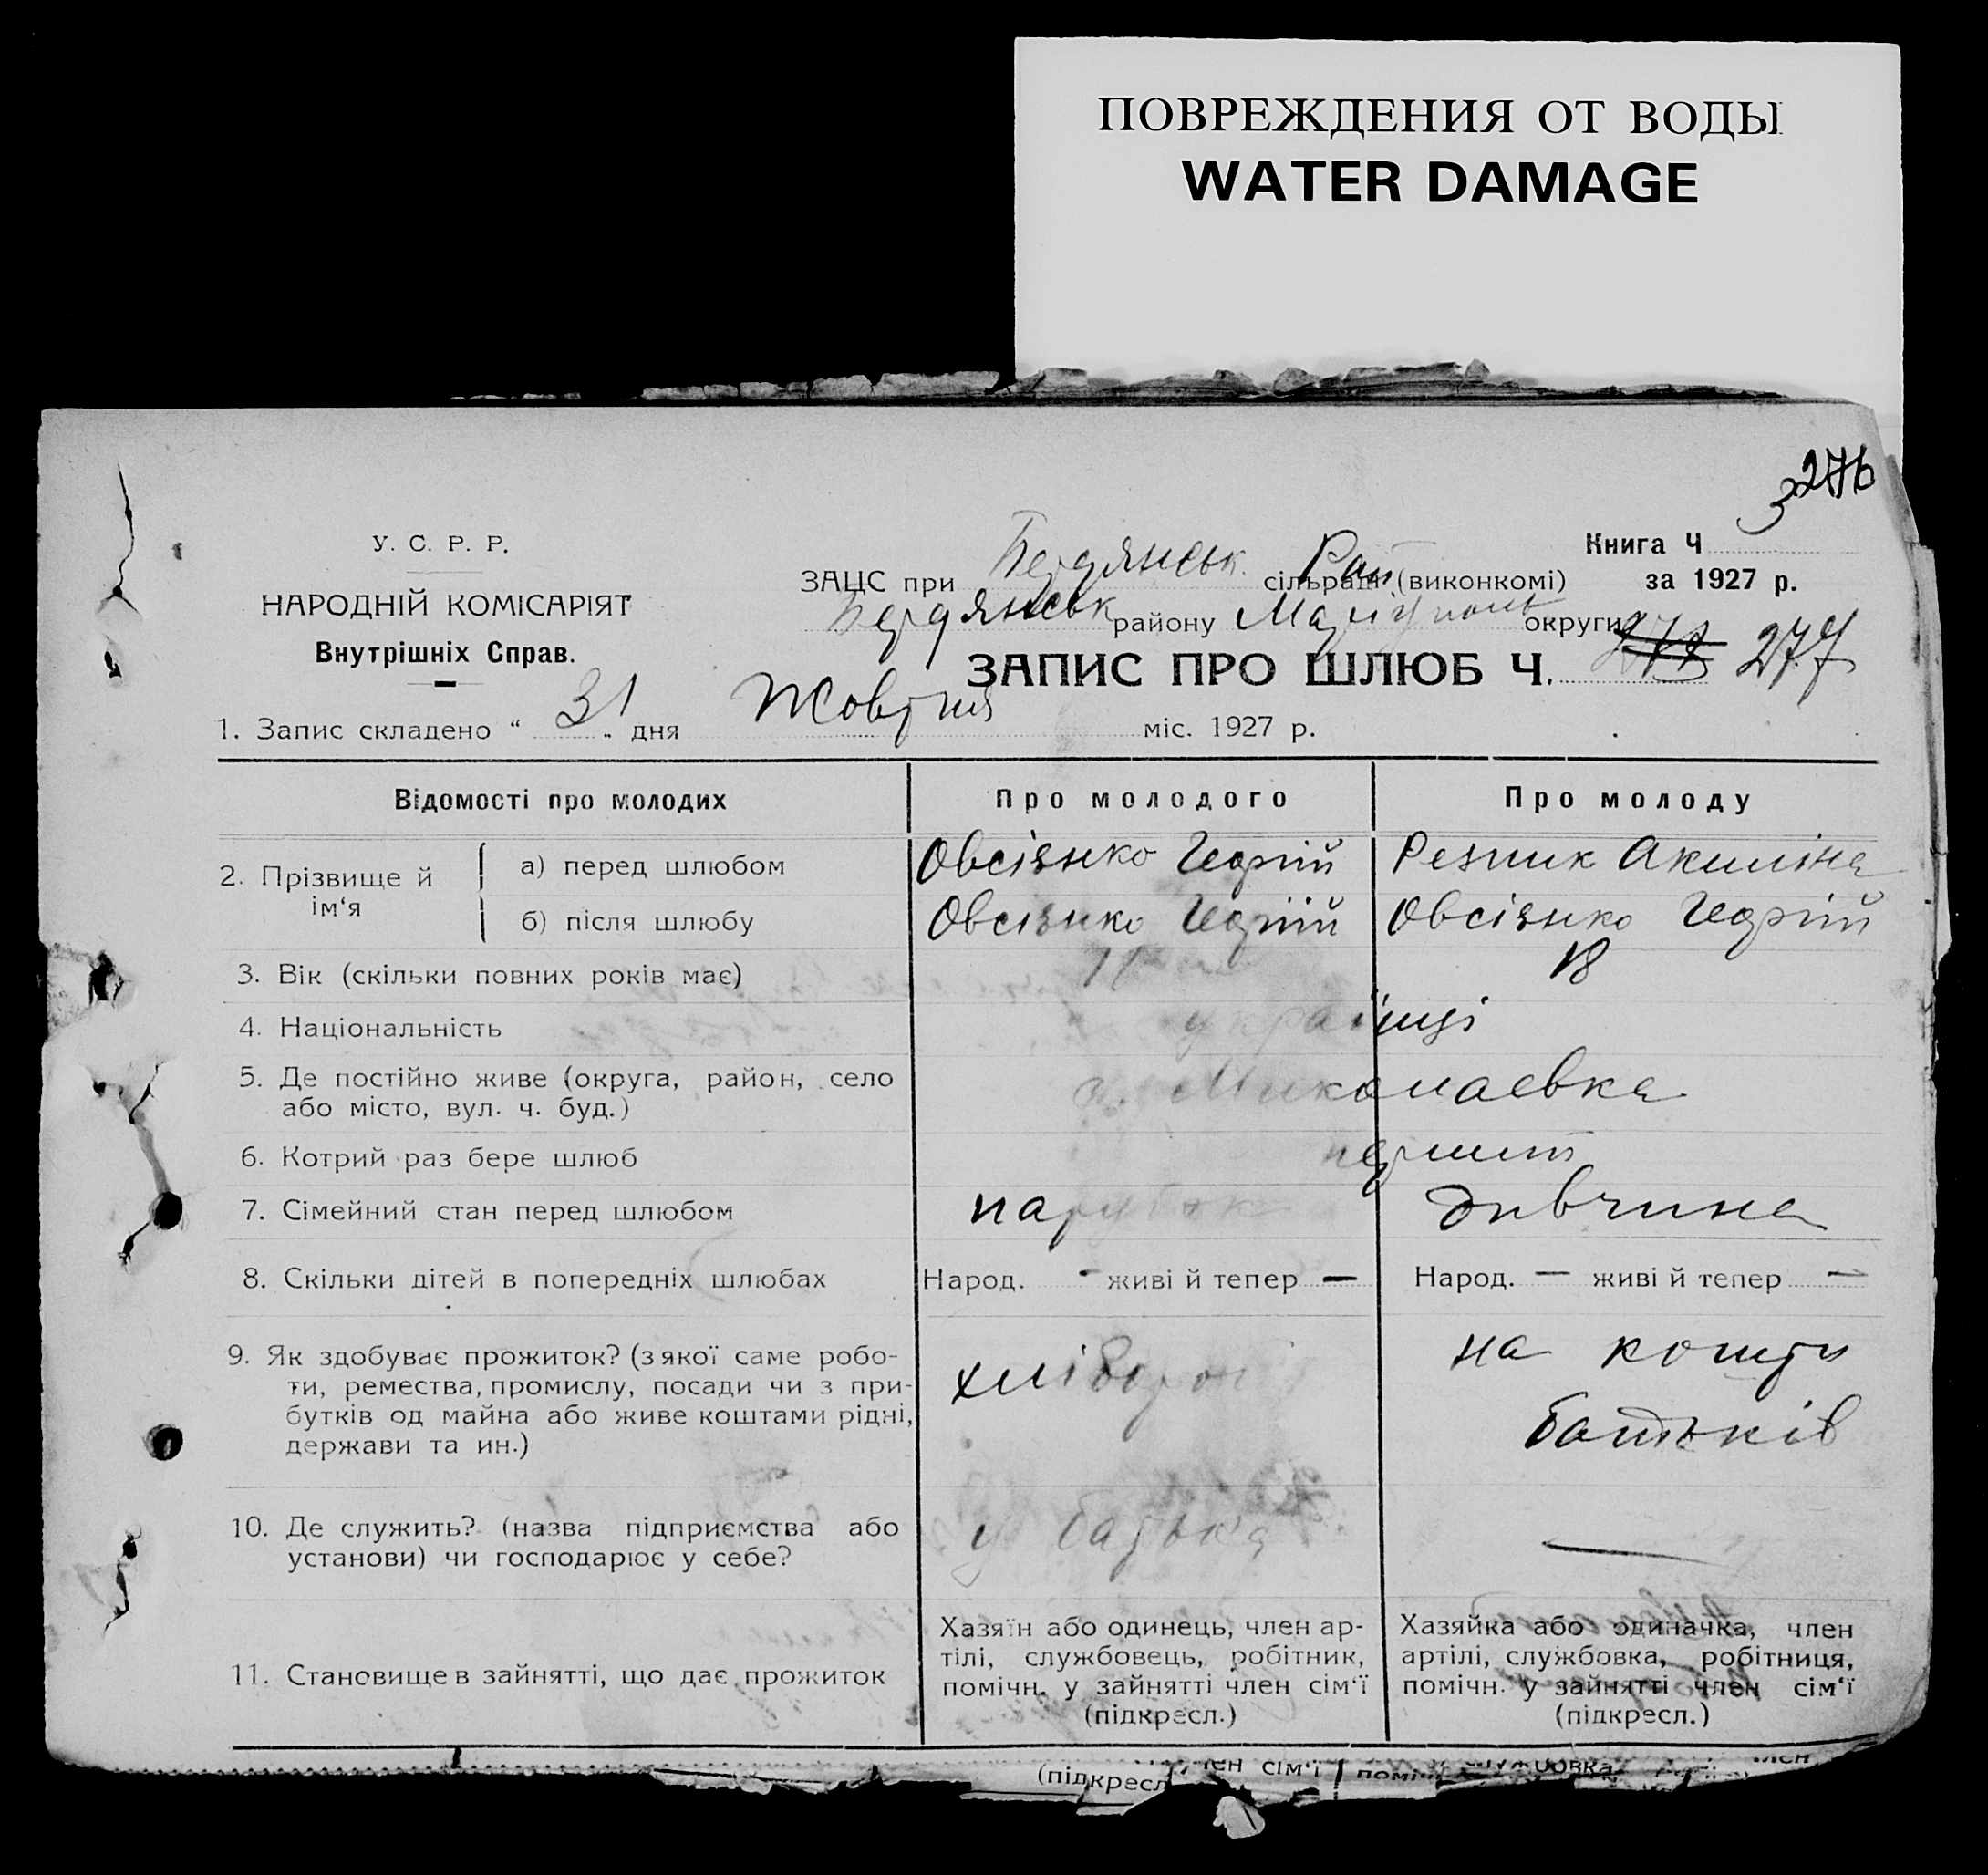 ПОВРЕЖДЕНИЯ ОТ ВОДЫ
WATER DAMAGE
276
У. С. Р. Р.
НАРОДНІЙ КОМІСАРІЯТ
Внутрішніх Справ.
Книга Ч 3
за 1927 р.
ЗАЦС при Бердянськ. Рай сільраді (виконкомі)
Бердянськ району Маріуполь округи
ЗАПИС ПРО ШЛЮБ Ч. 277
1. Запис складено “ 31 „ дня Жовтня міс. 1927 р.
Відомості про молодих
Про молодого
Про молоду
2. Прізвище й ім‘я
а) перед шлюбом
Овсієнко Георгій
Резник Акиліна
б) після шлюбу
Овсієнко Георгій
Овсієнко Георгій
3. Вік (скільки повних років має)
18
4. Національність
українці
5. Де постійно живе (округа, район, село
або місто, вул. ч. буд.)
Миколаевка
6. Котрий раз бере шлюб
7. Сімейний стан перед шлюбом
парубок
дивчина
8. Скільки дітей в попередніх шлюбах
Народ. - живі й тепер —
Народ. — живі й тепер —
9. Як здобуває прожиток? (з якої саме робо-
ти, ремества, промислу, посади чи з при-
бутків од майна або живе коштами рідні,
держави та ин.)
хлібороб
на кошти
батьків
10. Де служить? (назва підприємства або
установи) чи господарює у себе?
у батька
—
11. Становище в зайнятті, що дає прожиток
Хазяїн або одинець, член ар-
тілі, службовець, робітник,
помічн. у зайнятті член сім‘ї
(підкресл.)
Хазяйка або одиначка, член
артілі, службовка, робітниця,
помічн. у зайнятті член сім‘ї
(підкресл.)
(підкресл
сім‘ї